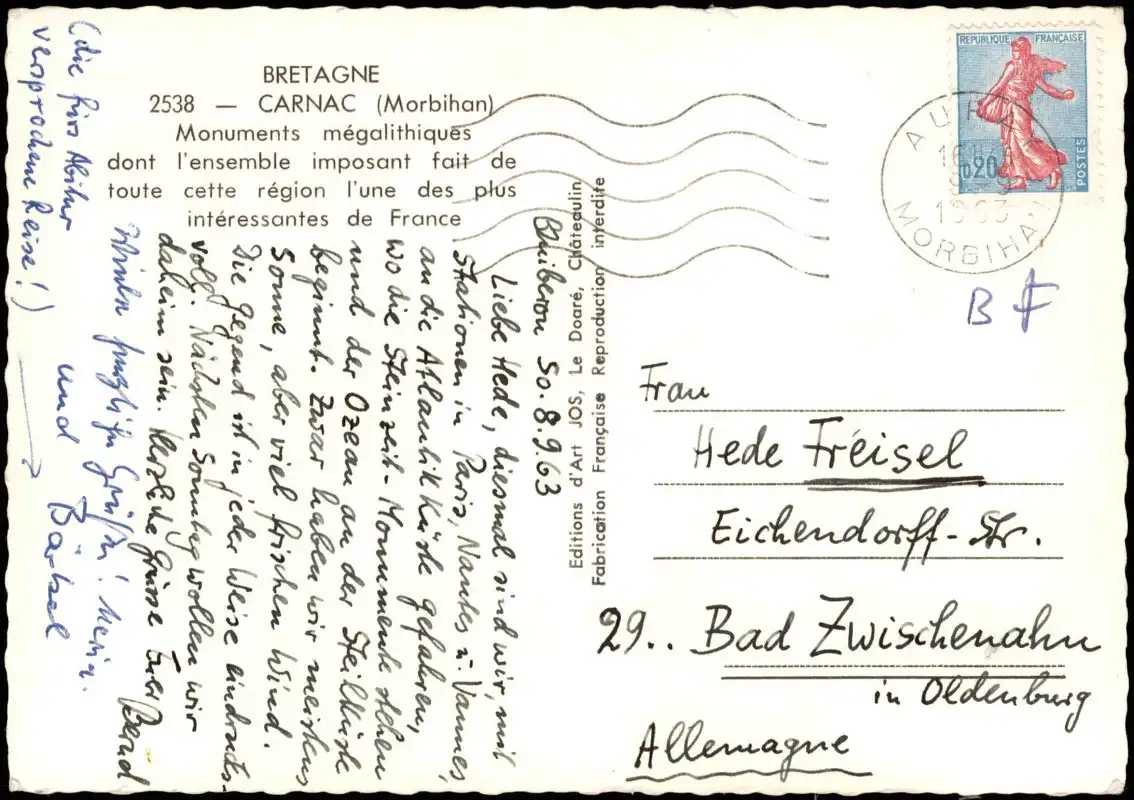 BRETAGNE
2538 — CARNAC (Morbihan)
Monuments mégalithiques
dont l'ensemble imposant fait de
toute cette région l'une des plus
intéressantes de France
Editions d'Art JOS, Le Doaré, Châteaulin
Fabrication Française Reproduction interdite
REPUBLIQUE FRANÇAISE
0,20
POSTES
1963
MORBIHAN
B F
Frau
Hede Freisel
Eichendorff-Str.
29.. Bad Zwischenahn
in Oldenburg
Allemagne
So. 8.9.63
Liebe Hede, diesmal sind wir, mit
Stationen in Paris, Nantes u. Vannes,
an die Atlantikküste gefahren,
wo die Steinzeit-Monumente stehen
und der Ozean an der Steilküste
beginnt. Zwar haben wir meistens
Sonne, aber viel frischen Wind.
Die Gegend ist in jeder Weise eindrucks-
voll. Nächsten Sonntag wollen wir
daheim sein. Herzliche Grüsse Euer Bernd
herzliche Grüße!
und Bärbel
(die fürs Abitur
versprochene Reise!)